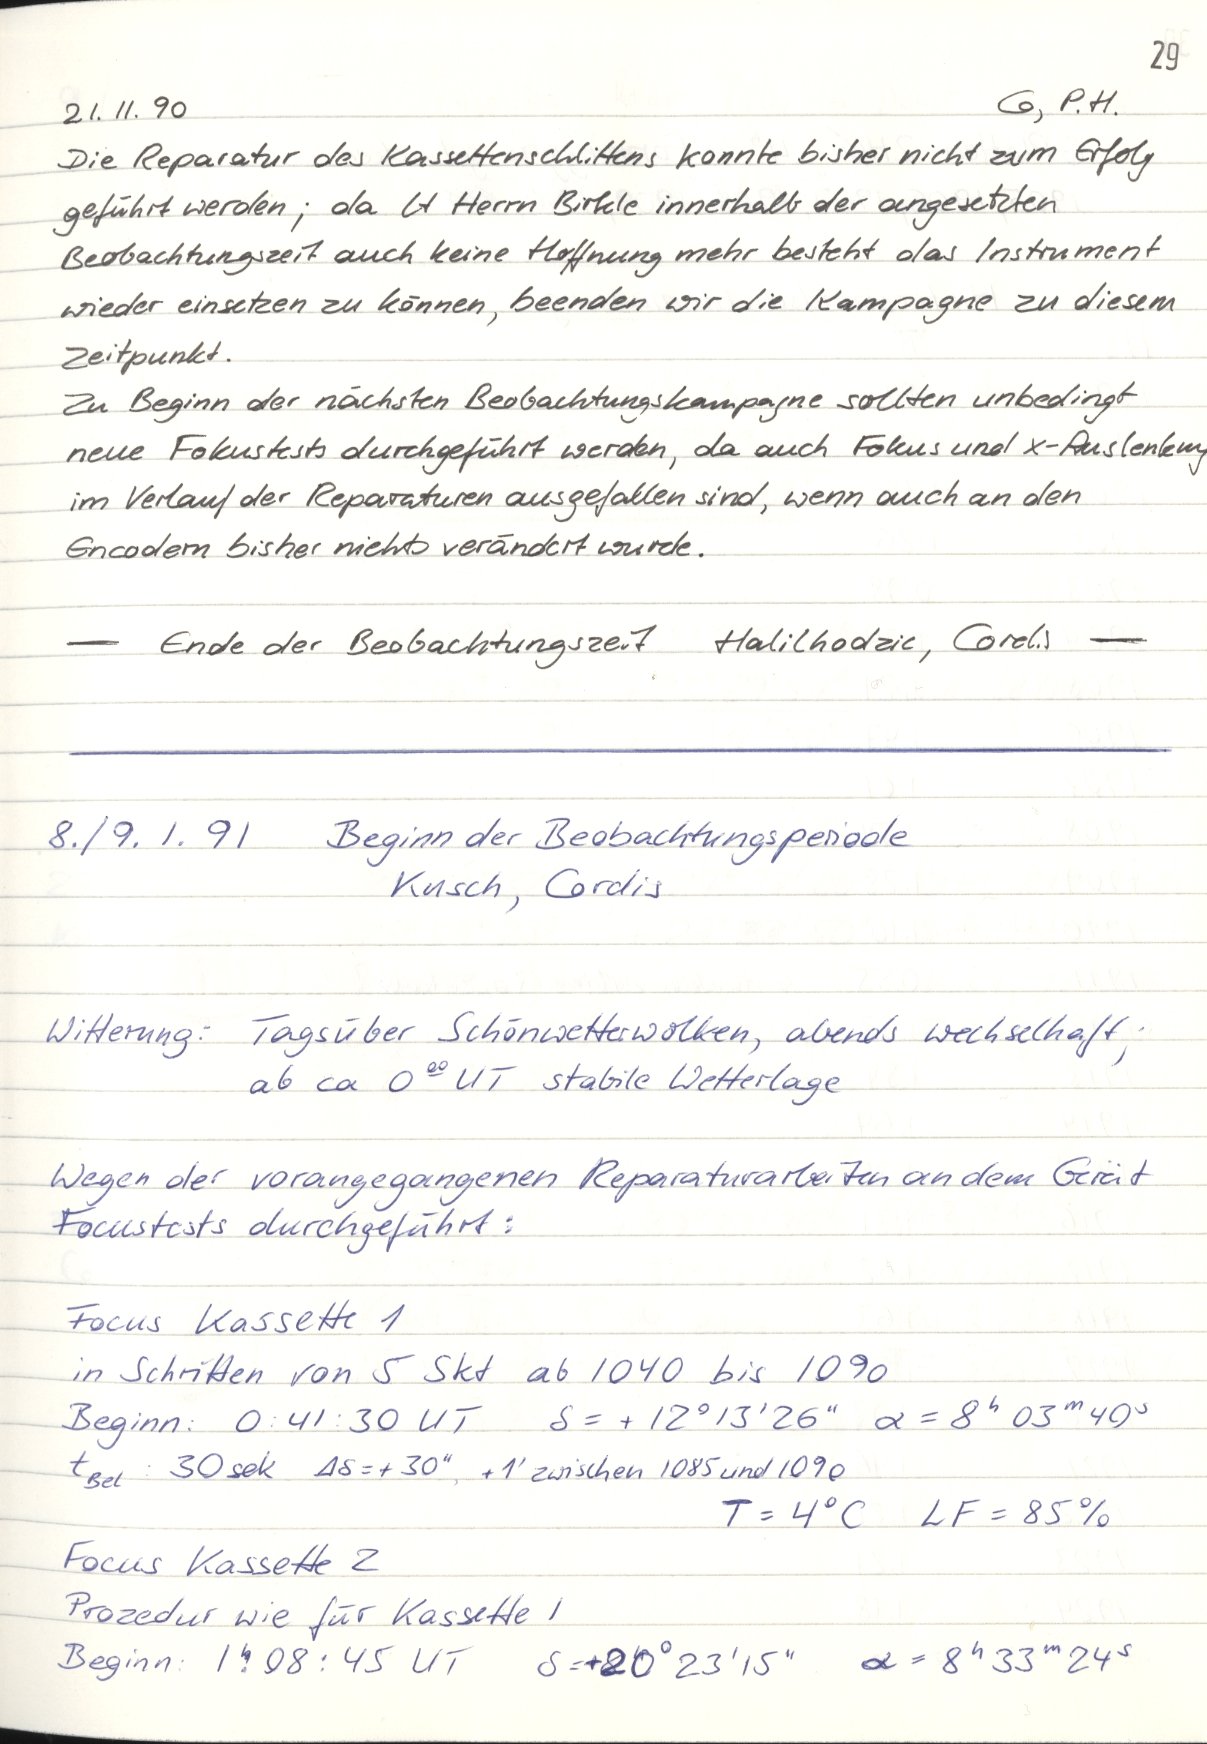 29
21. 11. 90 Co, P.H.
Die Reparatur des Kassettenschlittens konnte bisher nicht zum Erfolg
geführt werden; da lt Herrn Birkle innerhalb der angesetzten
Beobachtungszeit auch keine Hoffnung mehr besteht das Instrument
wieder einsetzen zu können, beenden wir die Kampagne zu diesem
Zeitpunkt.
Zu Beginn der nächsten Beobachtungskampagne sollten unbedingt
neue Fokustests durchgeführt werden, da auch Fokus und x-Auslenkung
im Verlauf der Reparaturen ausgefallen sind, wenn auch an den
Encodern bisher nichts verändert wurde.
— Ende der Beobachtungszeit Halilhodzic, Cordis —
8./9. 1. 91 Beginn der Beobachtungsperiode
Kusch, Cordis
Witterung: Tagsüber Schönwetterwolken, abends wechselhaft;
ab ca 0⁰⁰ UT stabile Wetterlage
Wegen der vorangegangenen Reparaturarbeiten an dem Gerät
Focustests durchgeführt:
Focus Kassette 1
in Schritten von 5 Skt ab 1040 bis 1090
Beginn: 0:41:30 UT δ = + 12° 13' 26" α = 8ʰ 03ᵐ 40ˢ
t_Bel : 30 sek Δδ = + 30", + 1' zwischen 1085 und 1090
T = 4°C LF = 85%
Focus Kassette 2
Prozedur wie für Kassette 1
Beginn: 1ʰ: 08 : 45 UT δ = +20° 23' 15" α = 8ʰ 33ᵐ 24ˢ